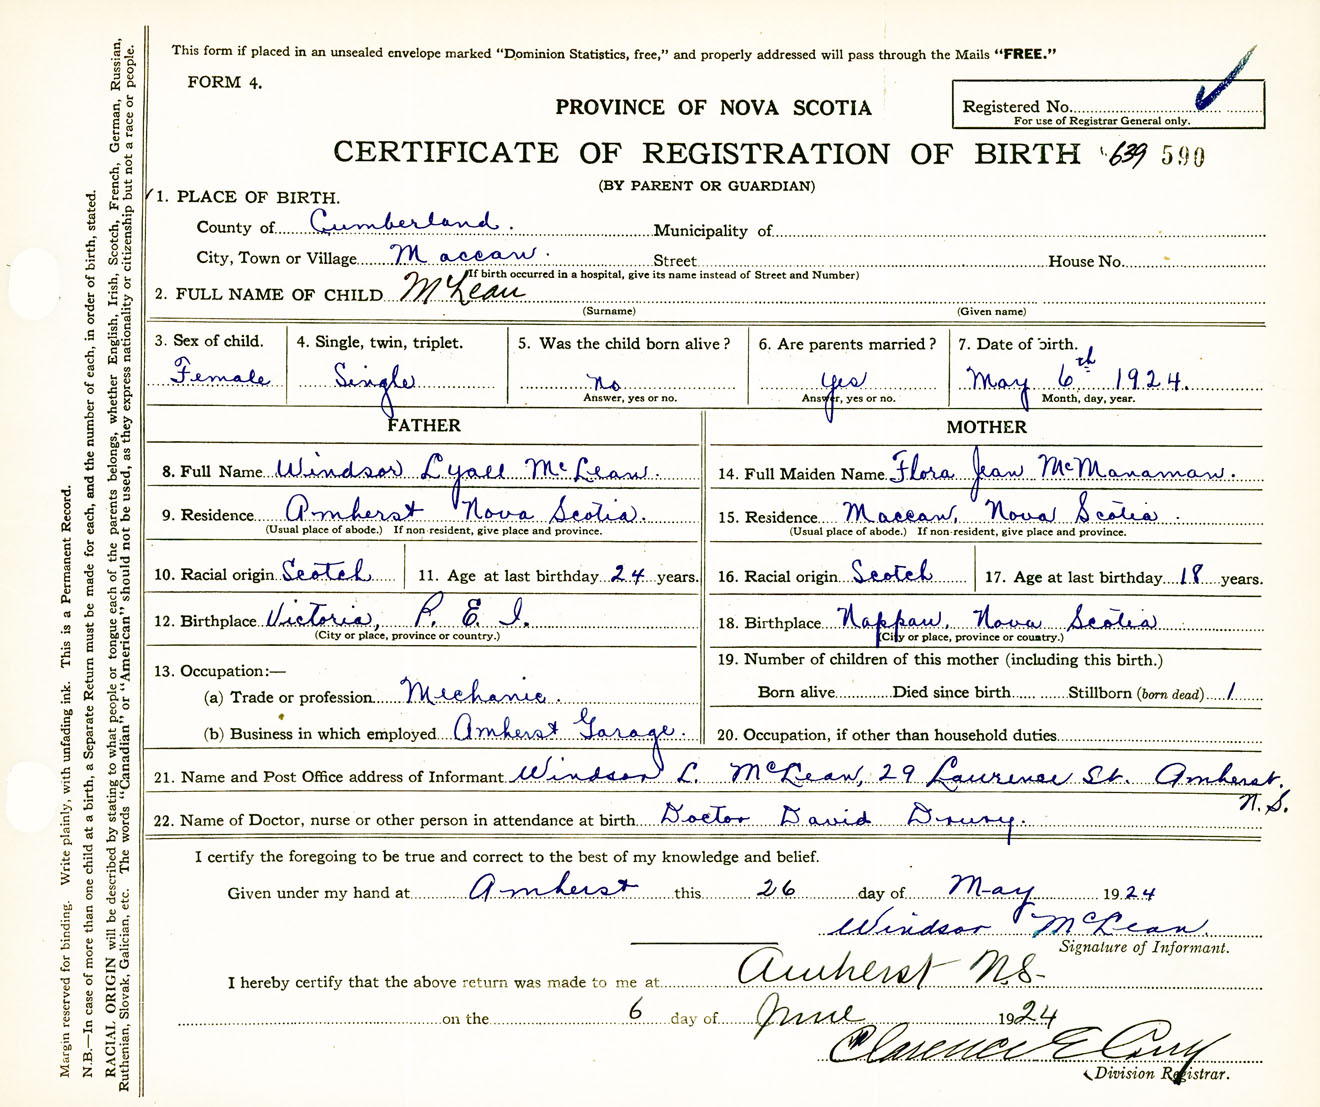 This form if placed in an unsealed envelope marked “Dominion Statistics, free,” and properly addressed will pass through the Mails “FREE.”
FORM 4.
PROVINCE OF NOVA SCOTIA
Registered No.
For use of Registrar General only.
CERTIFICATE OF REGISTRATION OF BIRTH 639 590
(BY PARENT OR GUARDIAN)
1. PLACE OF BIRTH.
County of Cumberland. Municipality of
City, Town or Village Maccan. Street House No.
(If birth occurred in a hospital, give its name instead of Street and Number)
2. FULL NAME OF CHILD McLean
(Surname) (Given name)
3. Sex of child. 4. Single, twin, triplet. 5. Was the child born alive? 6. Are parents married? 7. Date of birth.
Female Single no yes May 6th 1924.
Answer, yes or no. Answer, yes or no. Month, day, year.
FATHER MOTHER
8. Full Name Windsor Lyall McLean. 14. Full Maiden Name Flora Jean McManaman.
9. Residence Amherst Nova Scotia. 15. Residence Maccan, Nova Scotia.
(Usual place of abode.) If non-resident, give place and province. (Usual place of abode.) If non-resident, give place and province.
10. Racial origin Scotch 11. Age at last birthday 24 years. 16. Racial origin Scotch 17. Age at last birthday 18 years.
12. Birthplace Victoria, P. E. I. 18. Birthplace Nappan, Nova Scotia
(City or place, province or country.) (City or place, province or country.)
13. Occupation:— 19. Number of children of this mother (including this birth.)
(a) Trade or profession Mechanic. Born alive Died since birth Stillborn (born dead) 1
(b) Business in which employed Amherst Garage. 20. Occupation, if other than household duties
21. Name and Post Office address of Informant Windsor L. McLean, 29 Laurence St. Amherst,
N. S.
22. Name of Doctor, nurse or other person in attendance at birth Doctor David Drury.
I certify the foregoing to be true and correct to the best of my knowledge and belief.
Given under my hand at Amherst this 26 day of May 1924
Windsor McLean.
Signature of Informant.
I hereby certify that the above return was made to me at Amherst N.S.
on the 6 day of June 1924
Clarence E
Division Registrar.
Margin reserved for binding. Write plainly, with unfading ink. This is a Permanent Record.
N.B.—In case of more than one child at a birth, a Separate Return must be made for each, and the number of each, in order of birth, stated.
RACIAL ORIGIN will be described by stating to what people or tongue each of the parents belongs, whether English, Irish, Scotch, French, German, Russian,
Ruthenian, Slovak, Galician, etc. The words “Canadian” or “American” should not be used, as they express nationality or citizenship but not a race or people.